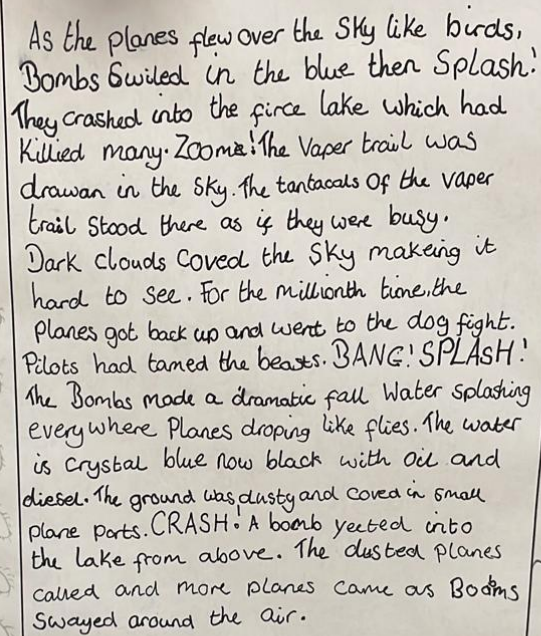 As the planes flew over the sky like birds,
Bombs Swiled in the blue then Splash!
They crashed into the firce lake which had
Killied many. Zooms! The Vaper trail was
drawan in the sky. The tantacals of the vaper
trail stood there as if they were busy.
Dark clouds coved the sky makeing it
hard to see. For the millionth time, the
planes got back up and went to the dog fight.
Pilots had tamed the beasts. BANG! SPLASH!
The Bombs made a dramatic fall Water splashing
everywhere Planes droping like flies. The water
is crystal blue now black with oil and
diesel. The ground was dusty and coved in small
plane parts. CRASH! A bomb yeeted into
the lake from above. The dusted planes
called and more planes came as Booms
swayed around the air.